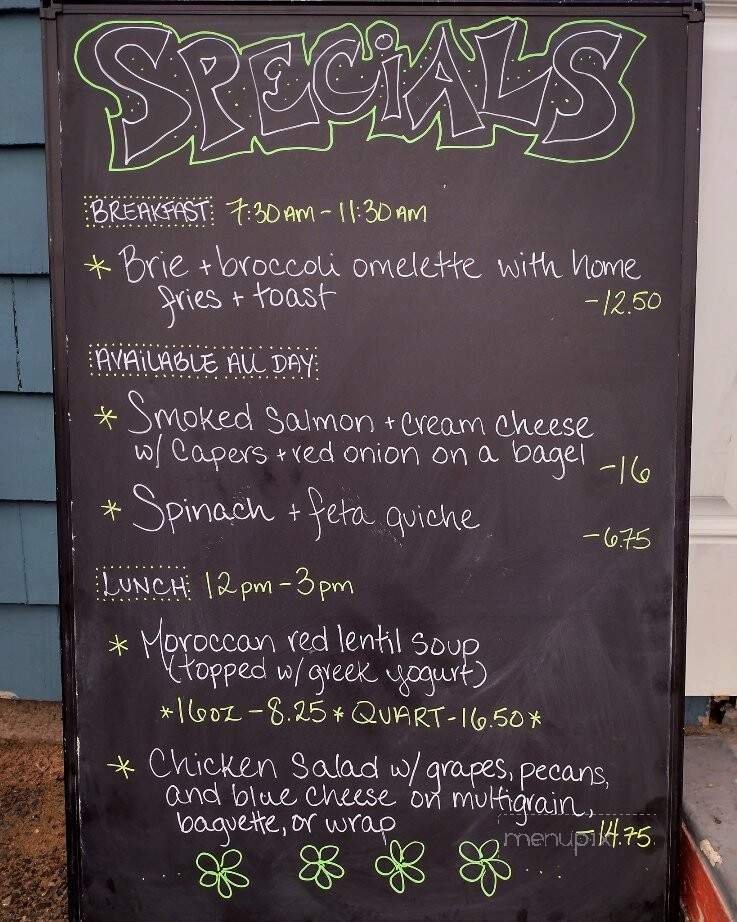 SPECiALS
BREAKFAST: 7:30 AM - 11:30 AM
* Brie + broccoli omelette with home
fries + toast -12.50
AVAiLABLE ALL DAY:
* Smoked Salmon + cream cheese
w/ Capers + red onion on a bagel -16
* Spinach + feta quiche -6.75
LUNCH: 12pm - 3pm
* Moroccan red lentil soup
(topped w/ greek yogurt)
*16oz - 8.25 * QUART - 16.50*
* Chicken Salad w/ grapes, pecans,
and blue cheese on multigrain,
baguette, or wrap -14.75
menupix